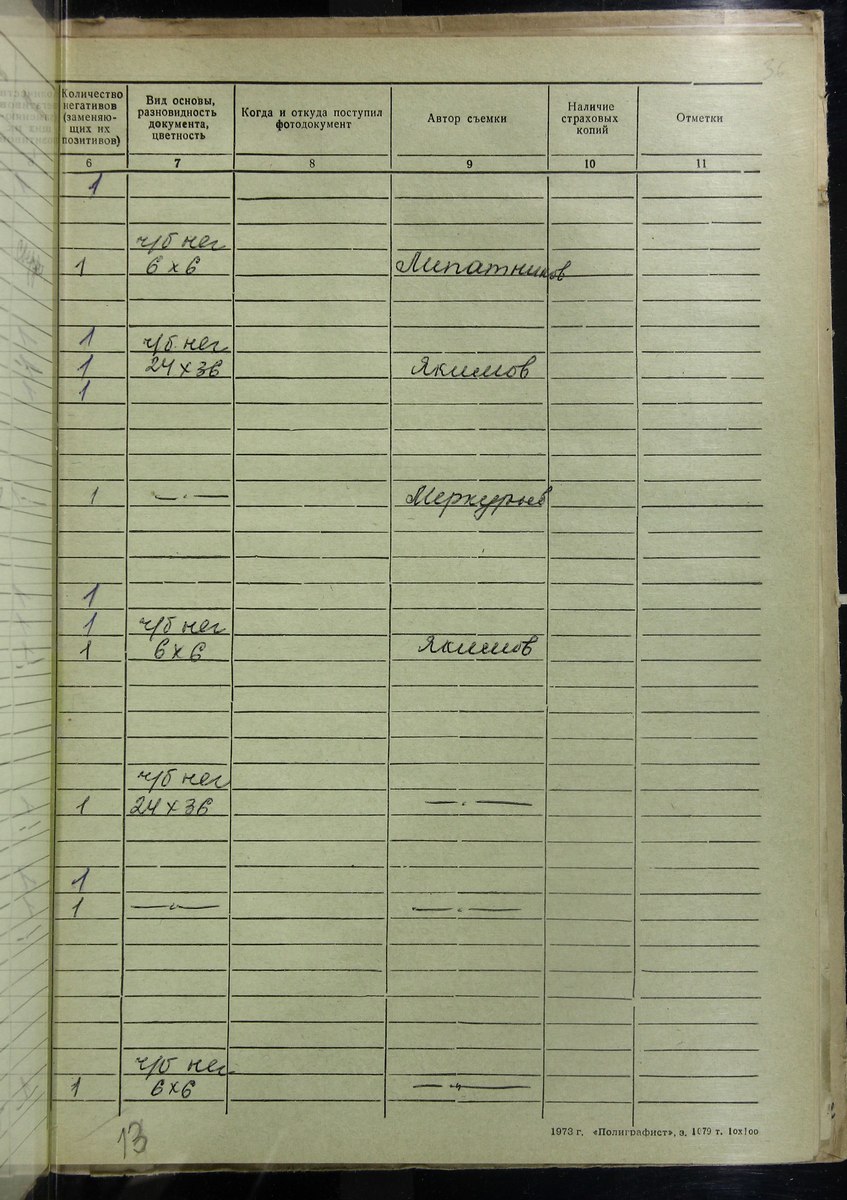 36
Количество негативов (заменяю-щих их позитивов)
Вид основы, разновидность документа, цветность
Когда и откуда поступил фотодокумент
Автор съемки
Наличие страховых копий
Отметки
6 7 8 9 10 11
1
ч/б нег
1 6х6 Липатников
1 ч/б нег
1 24х36 Якимов
1
1 —〃— Меркурьев
1
1 ч/б нег
1 6х6 Якимов
ч/б нег
1 24х36 —〃—
1
1 —〃— —〃—
ч/б нег
1 6х6 —〃—
13
1973 г. «Полиграфист», з. 1079 т. 10х100